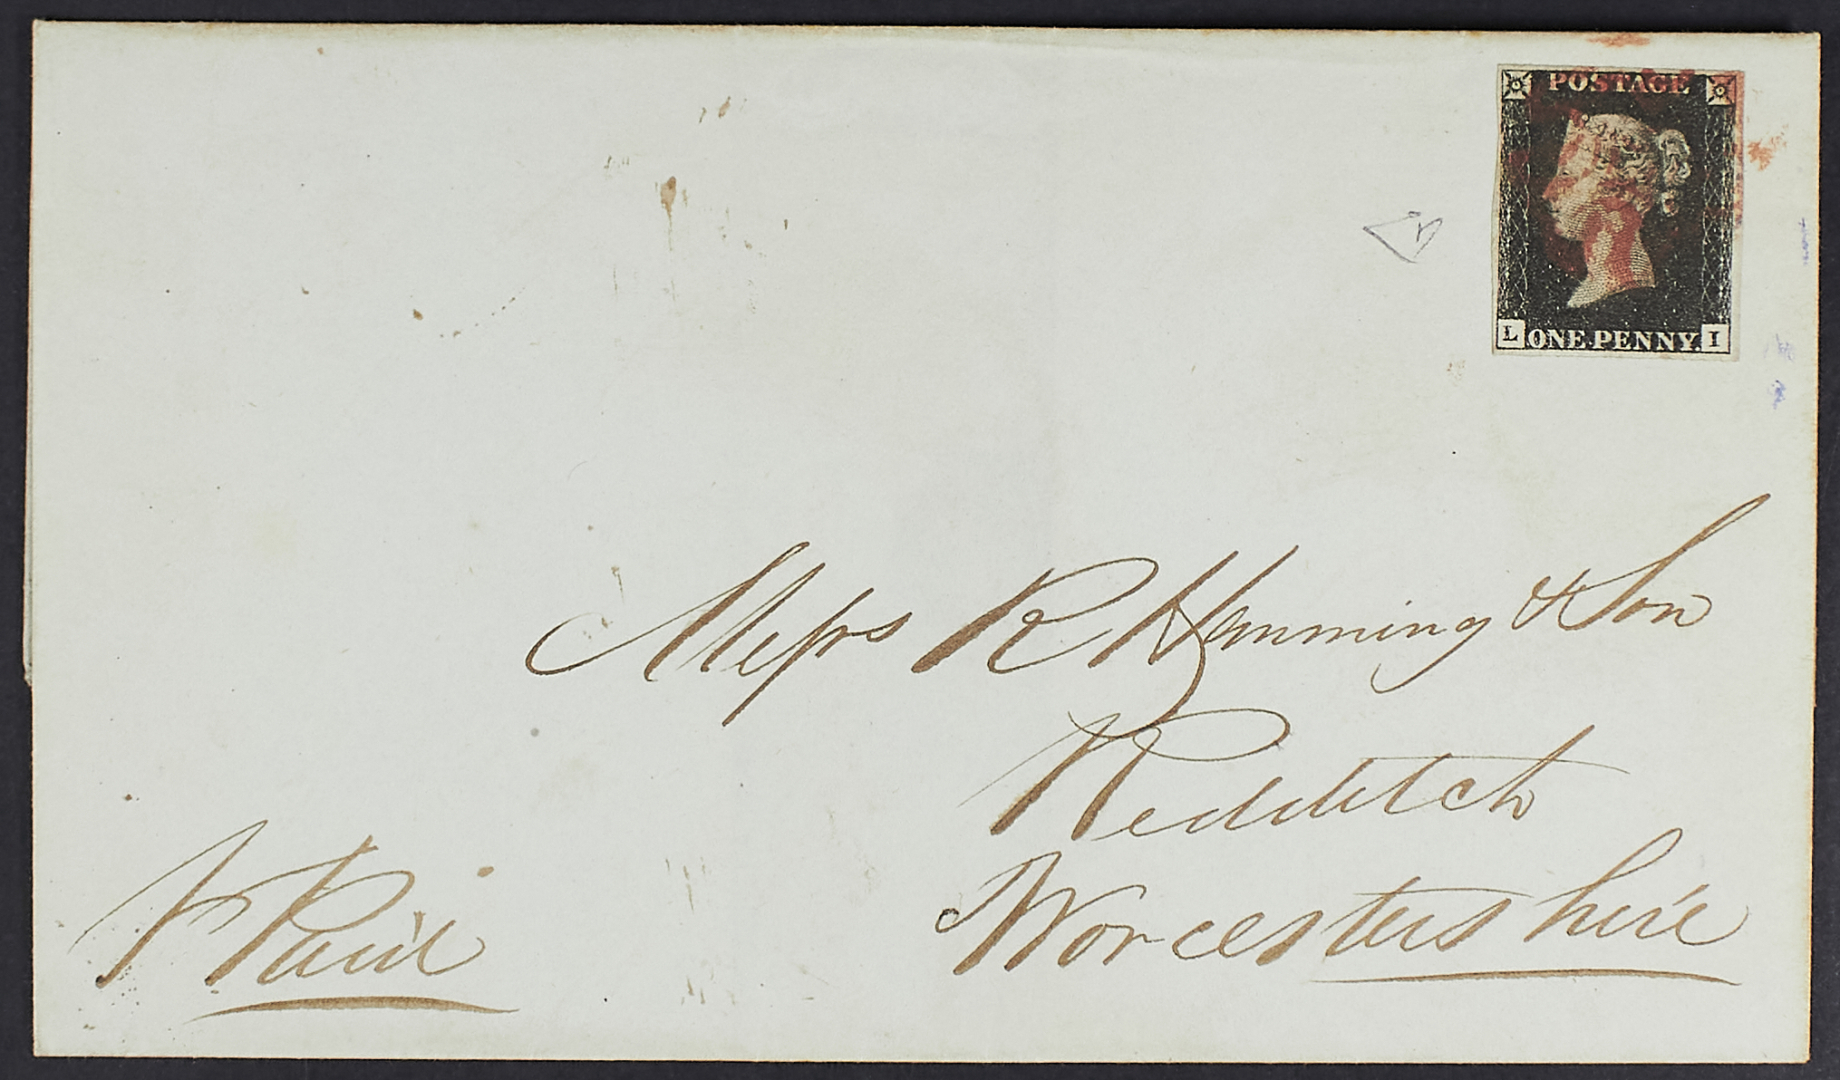 POSTAGE
L ONE PENNY. I
Messrs R Hemming & Son
Redditch
Worcestershire
Paid